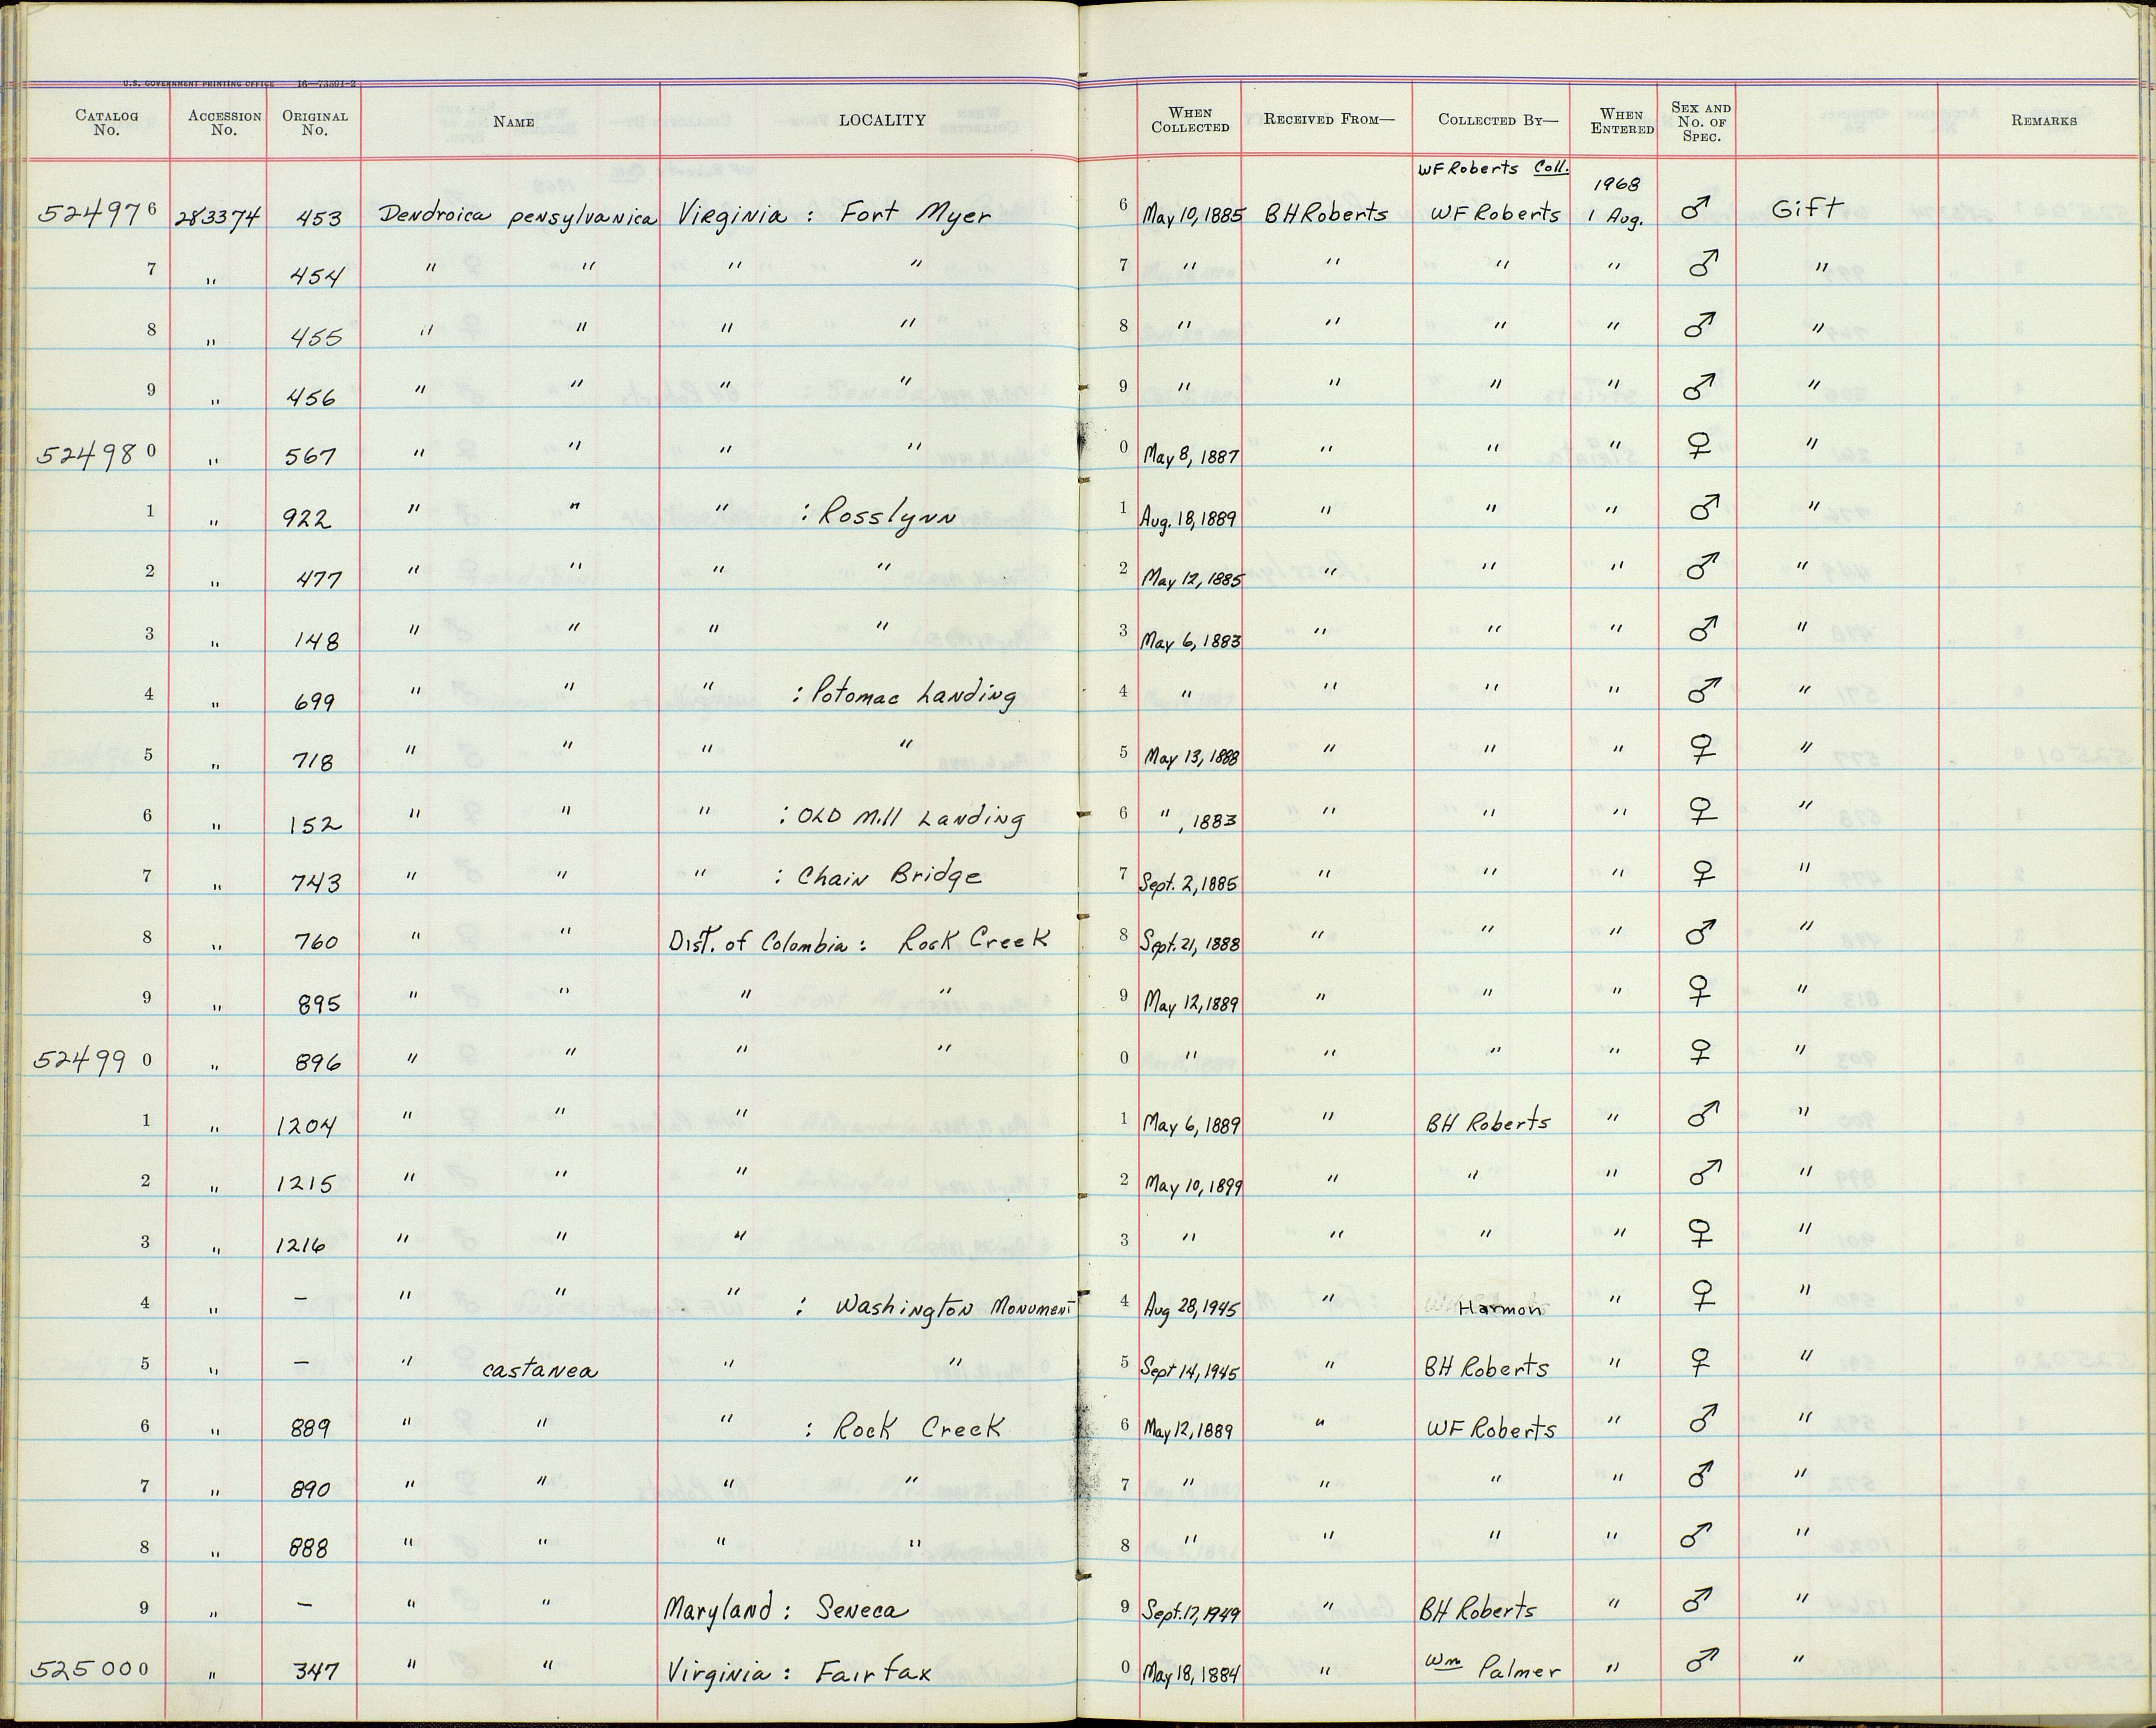 U.S. GOVERNMENT PRINTING OFFICE 16—73591-2
CATALOG No. ACCESSION No. ORIGINAL No. NAME LOCALITY WHEN COLLECTED RECEIVED FROM— COLLECTED BY— WHEN ENTERED SEX AND No. OF SPEC. REMARKS
WF Roberts Coll. 1968
524976 283374 453 Dendroica pensylvanica Virginia : Fort Myer 6 May 10, 1885 BH Roberts WF Roberts 1 Aug. ♂ Gift
7 " 454 " " " " 7 " " " " ♂ "
8 " 455 " " " " 8 " " " " ♂ "
9 " 456 " " " " 9 " " " " ♂ "
524980 " 567 " " " " 0 May 8, 1887 " " " ♀ "
1 " 922 " " " : Rosslynn 1 Aug. 18, 1889 " " " ♂ "
2 " 477 " " " " 2 May 12, 1885 " " " ♂ "
3 " 148 " " " " 3 May 6, 1883 " " " ♂ "
4 " 699 " " " : Potomac Landing 4 " " " " ♂ "
5 " 718 " " " " 5 May 13, 1888 " " " ♀ "
6 " 152 " " " : OLD Mill Landing 6 " , 1883 " " " ♀ "
7 " 743 " " " : Chain Bridge 7 Sept. 2, 1885 " " " ♀ "
8 " 760 " " Dist. of Colombia : Rock Creek 8 Sept. 21, 1888 " " " ♂ "
9 " 895 " " " " 9 May 12, 1889 " " " ♀ "
524990 " 896 " " " " 0 " " " " ♀ "
1 " 1204 " " " 1 May 6, 1889 " BH Roberts " ♂ "
2 " 1215 " " " 2 May 10, 1899 " " " ♂ "
3 " 1216 " " " 3 " " " " ♀ "
4 " – " " " : Washington Monument 4 Aug 28, 1945 " Harmon " ♀ "
5 " – " castanea " " 5 Sept 14, 1945 " BH Roberts " ♀ "
6 " 889 " " " : Rock Creek 6 May 12, 1889 " WF Roberts " ♂ "
7 " 890 " " " " 7 " " " " ♂ "
8 " 888 " " " " 8 " " " " ♂ "
9 " – " " Maryland : Seneca 9 Sept. 17, 1949 " BH Roberts " ♂ "
525000 " 347 " " Virginia : Fairfax 0 May 18, 1884 " Wm Palmer " ♂ "